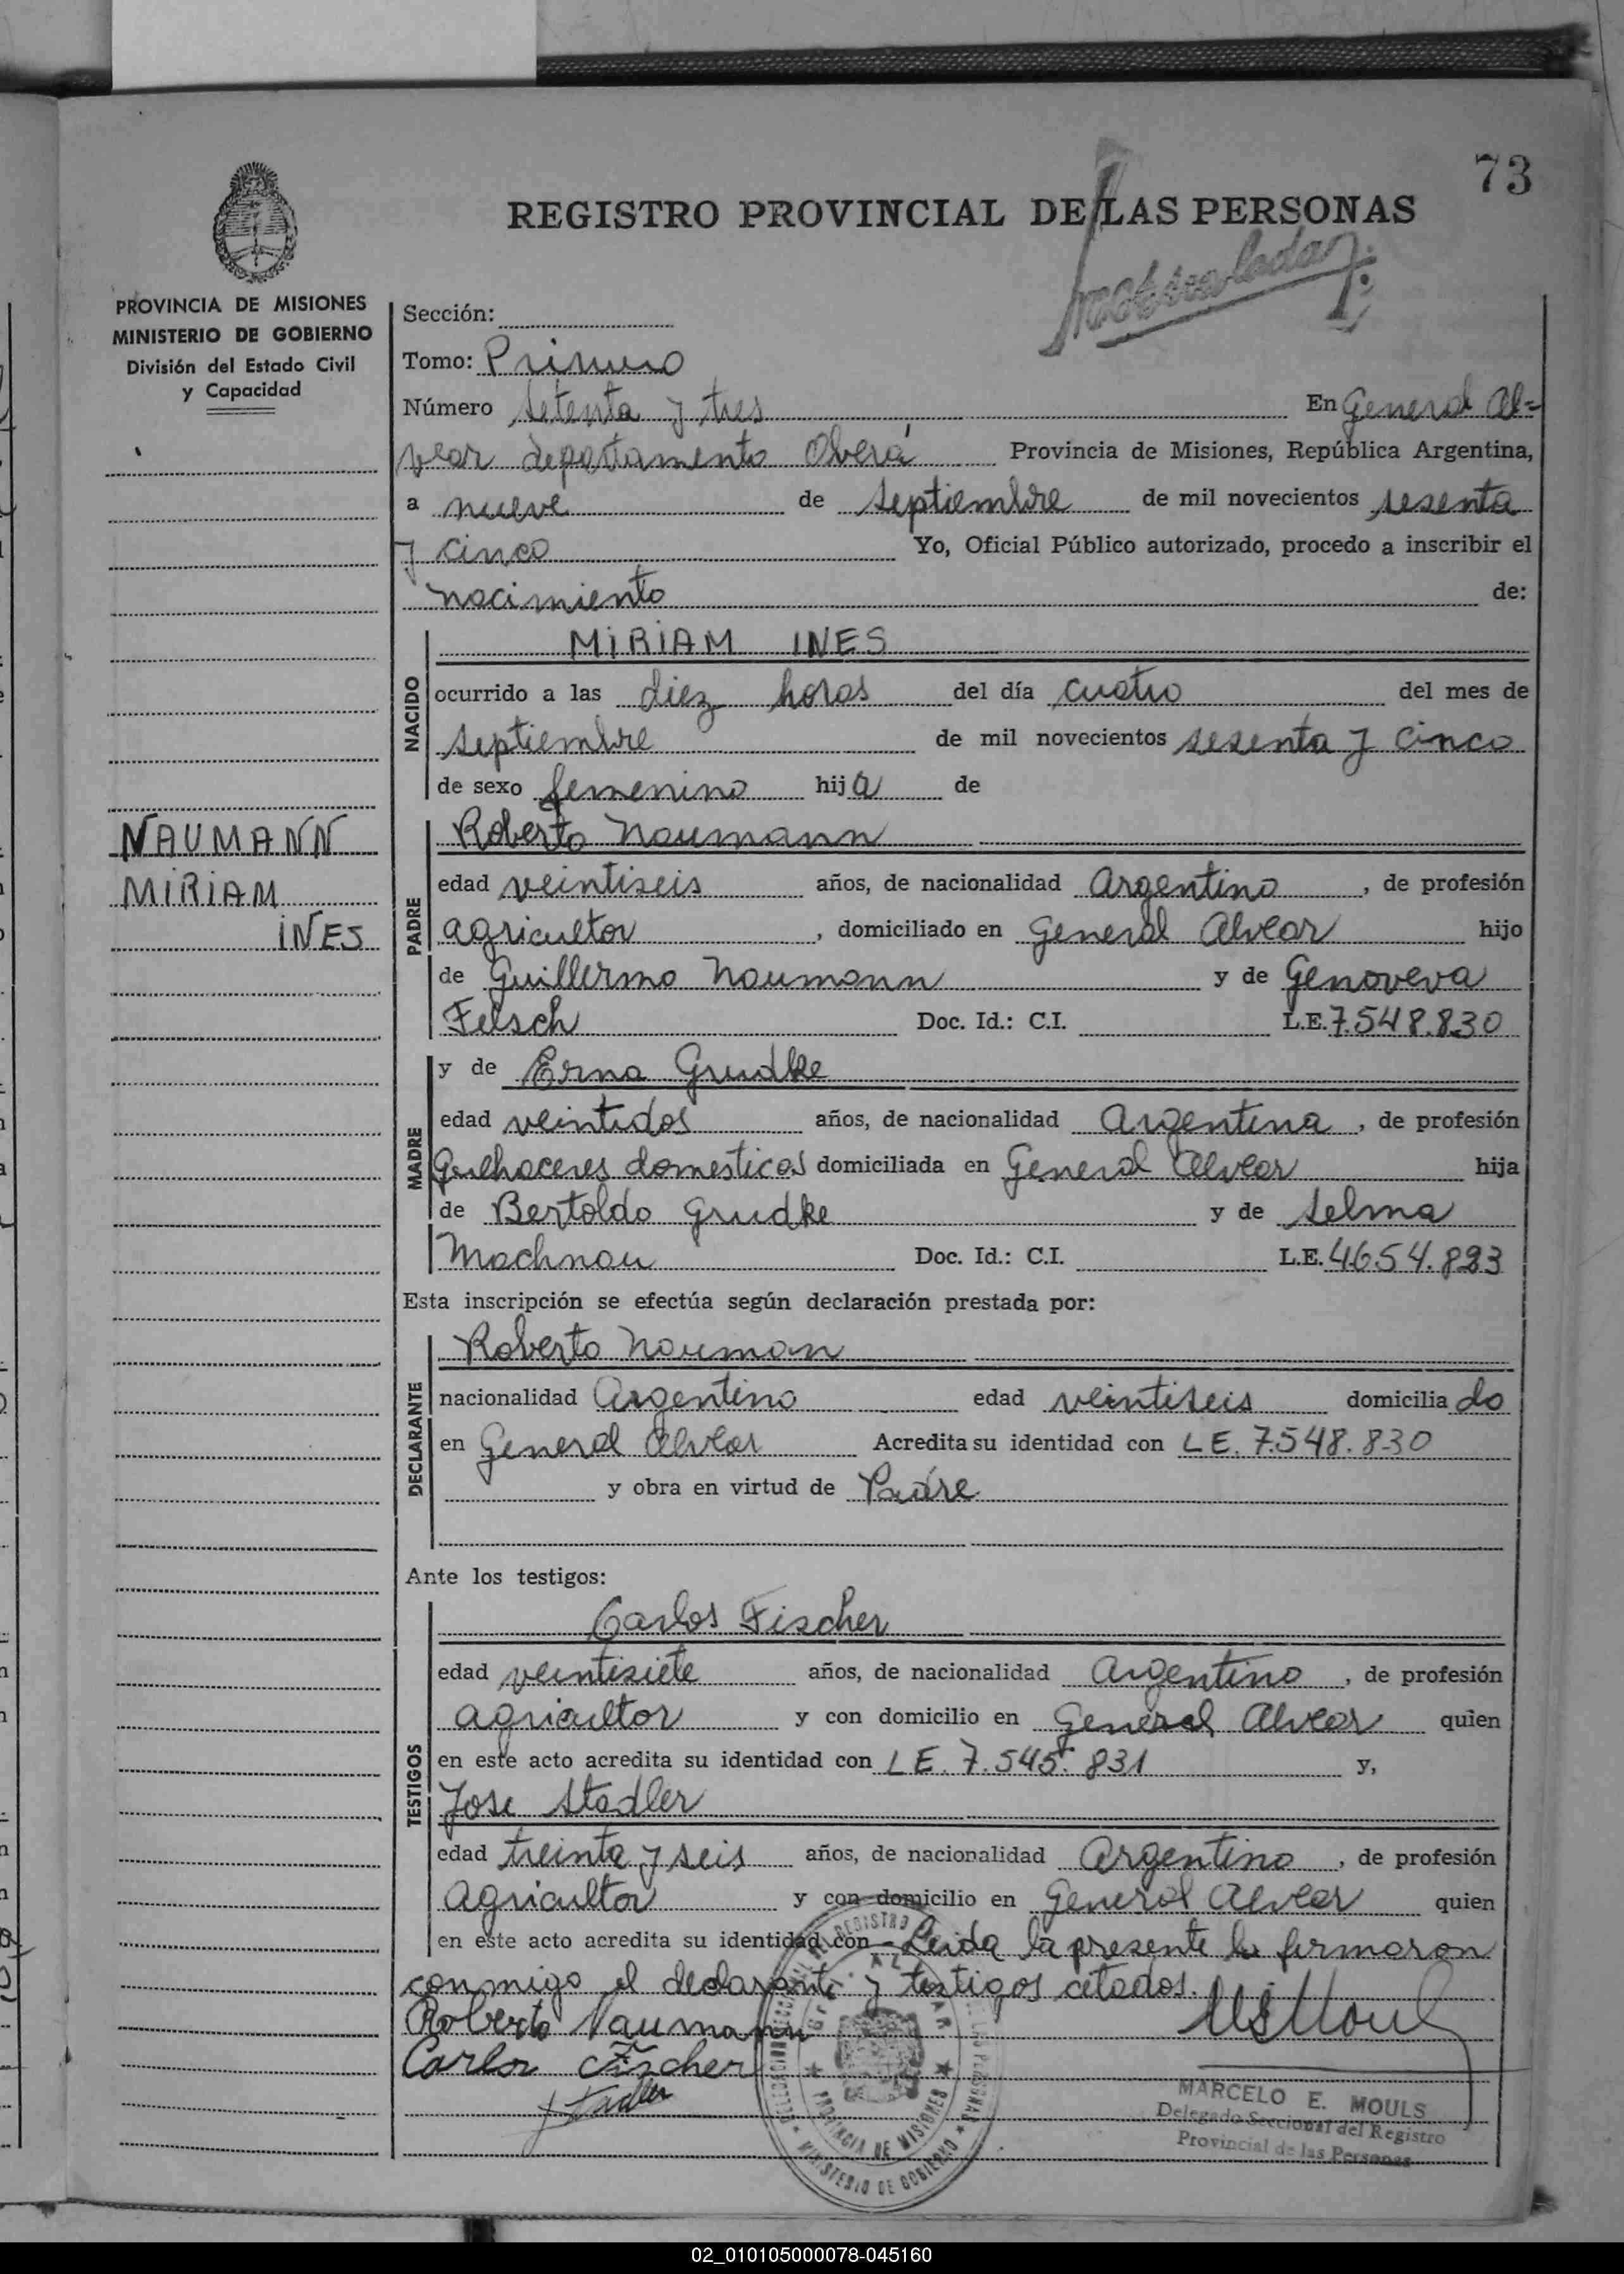 73
REGISTRO PROVINCIAL DE LAS PERSONAS
matriculada
PROVINCIA DE MISIONES
MINISTERIO DE GOBIERNO
División del Estado Civil
y Capacidad
Sección:
Tomo: Primero
Número setenta y tres En General Al=
vear departamento Oberá Provincia de Misiones, República Argentina,
a nueve de septiembre de mil novecientos sesenta
y cinco Yo, Oficial Público autorizado, procedo a inscribir el
nacimiento de:
NACIDO
MIRIAM INES
ocurrido a las diez horas del día cuatro del mes de
septiembre de mil novecientos sesenta y cinco
de sexo femenino hija de
NAUMANN
MIRIAM
INES
PADRE
Roberto Naumann
edad veintiseis años, de nacionalidad Argentino, de profesión
agricultor, domiciliado en General Alvear hijo
de Guillermo Naumann y de Genoveva
Felsch Doc. Id.: C.I. L.E. 7.548.830
MADRE
y de Erna Grudke
edad veintidos años, de nacionalidad Argentina, de profesión
Quehaceres domesticos domiciliada en General Alvear hija
de Bertoldo Grudke y de Selma
Machnau Doc. Id.: C.I. L.E. 4.654.893
Esta inscripción se efectúa según declaración prestada por:
DECLARANTE
Roberto Nauman
nacionalidad Argentino edad veintiseis domiciliado
en General Alvear Acredita su identidad con L E. 7.548.830
y obra en virtud de Padre
Ante los testigos:
TESTIGOS
Carlos Fischer
edad veintisiete años, de nacionalidad Argentino, de profesión
agricultor y con domicilio en General Alvear quien
en este acto acredita su identidad con L E. 7.545.831 y,
Jose Stadler
edad treinta y seis años, de nacionalidad Argentino, de profesión
agricultor y con domicilio en General Alvear quien
en este acto acredita su identidad con - Leida la presente la firmaron
conmigo el declarante y testigos citados.
Roberto Naumann
Carlos Fischer
J Stadler
MARCELO E. MOULS
Delegado Seccional del Registro
Provincial de las Personas
GRAL. ALVEAR
PROVINCIA DE MISIONES
MINISTERIO DE GOBIERNO
02_010105000078-045160